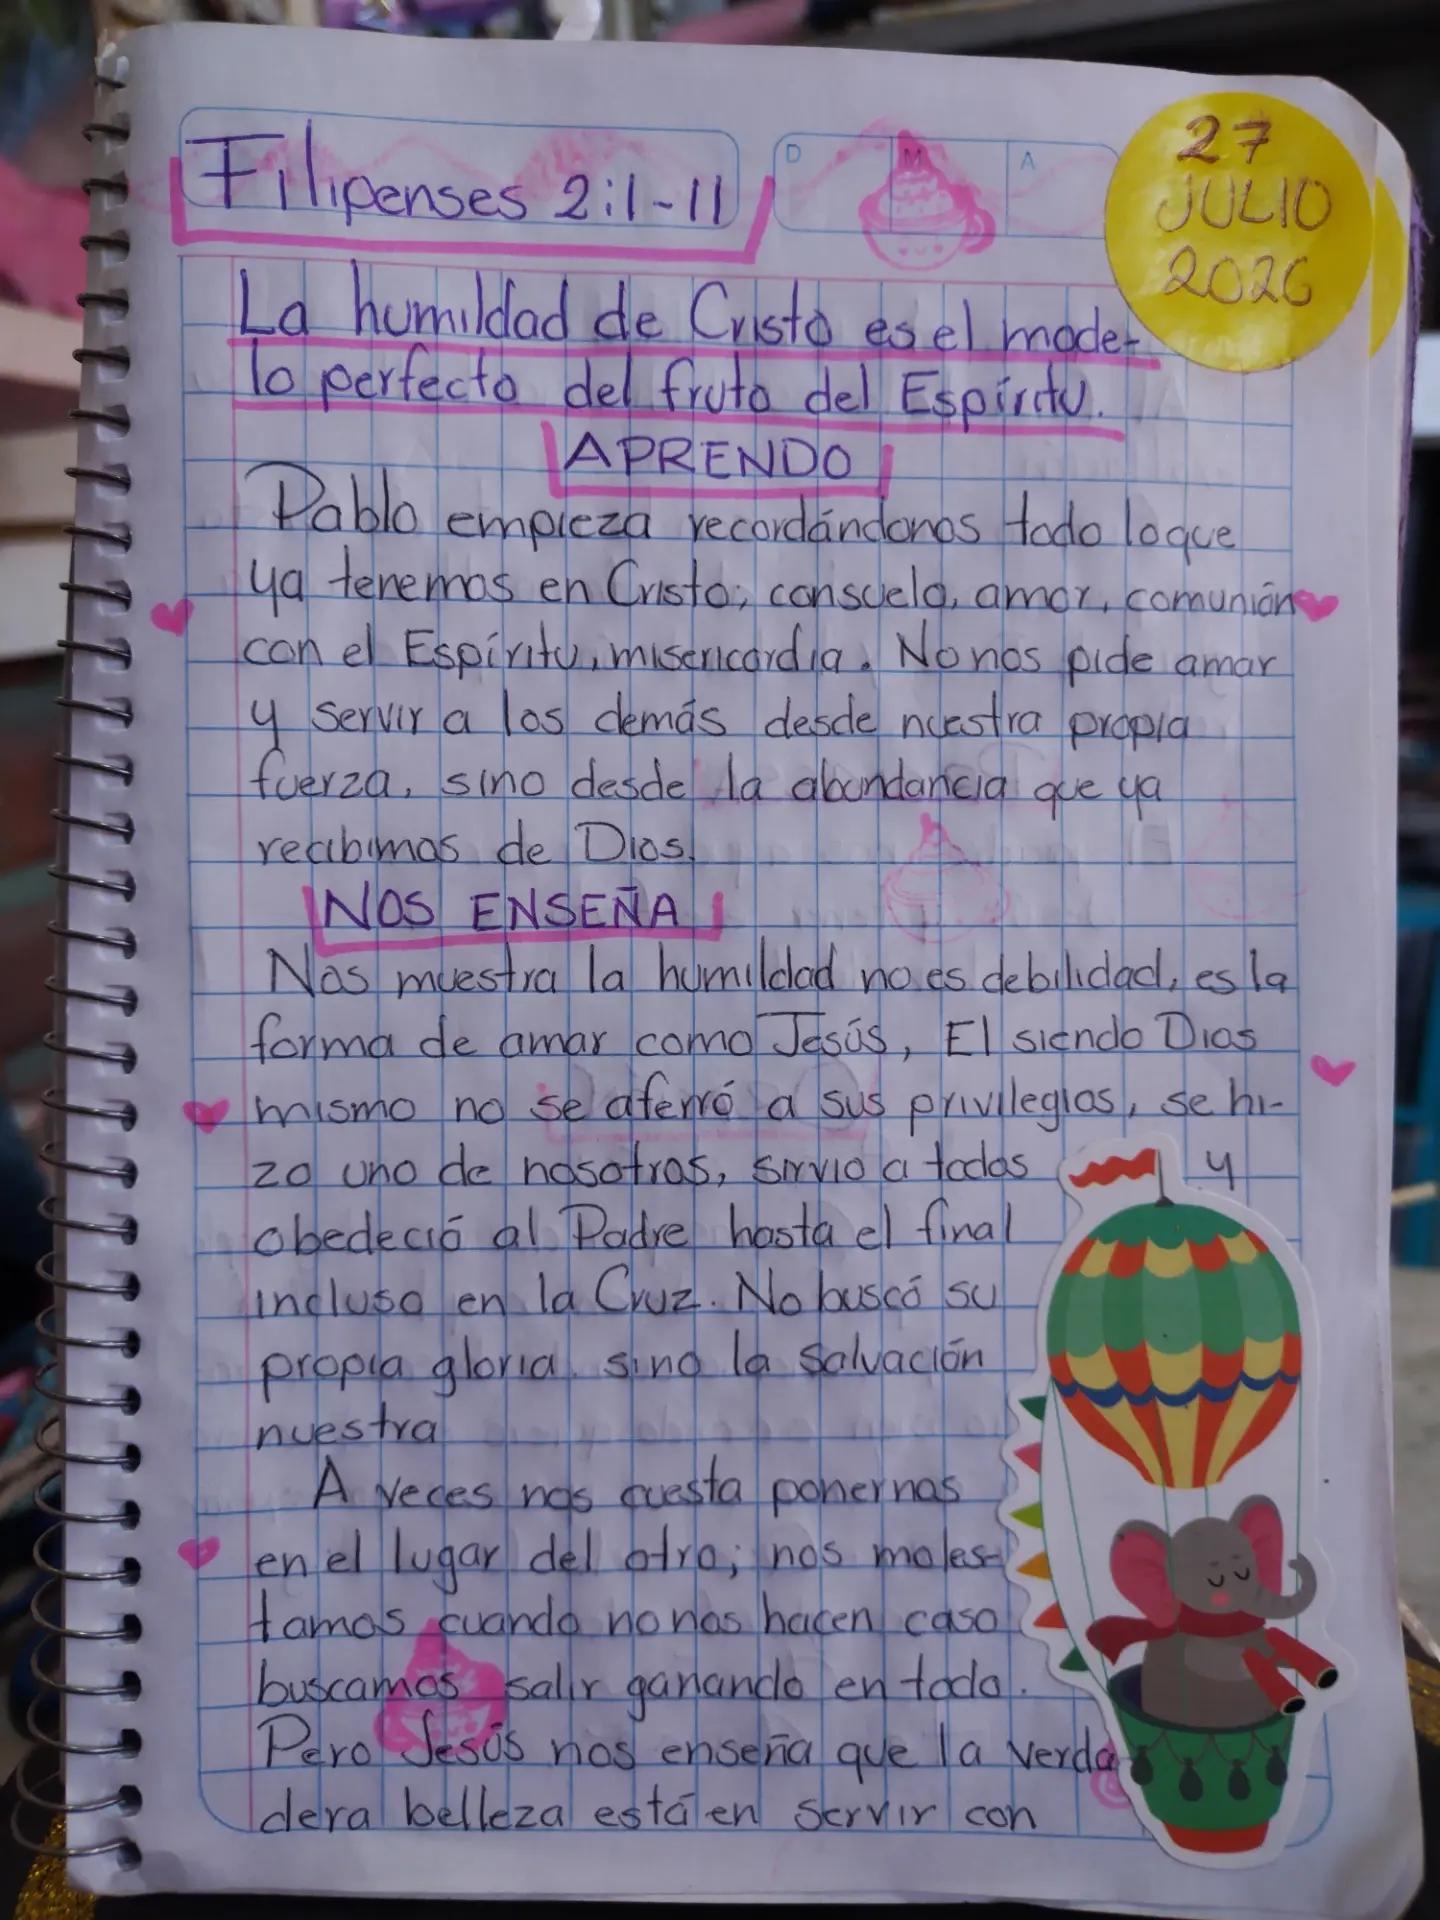 Filipenses 2:1-11
D M A
27
JULIO
2026
La humildad de Cristo es el mode-
lo perfecto del fruto del Espíritu.
APRENDO
Pablo empieza recordándonos todo lo que
ya tenemos en Cristo; consuelo, amor, comunión
con el Espíritu, misericordia. No nos pide amar
y servir a los demás desde nuestra propia
fuerza, sino desde la abundancia que ya
recibimos de Dios.
NOS ENSEÑA
Nos muestra la humildad no es debilidad, es la
forma de amar como Jesús, El siendo Dios
mismo no se aferró a sus privilegios, se hi-
zo uno de nosotros, sirvio a todos y
obedeció al Padre hasta el final
incluso en la Cruz. No buscó su
propia gloria. sino la salvación
nuestra
A veces nos cuesta ponernos
en el lugar del otro; nos moles-
tamos cuando no nos hacen caso
buscamos salir ganando en todo.
Pero Jesús nos enseña que la verda
dera belleza está en servir con